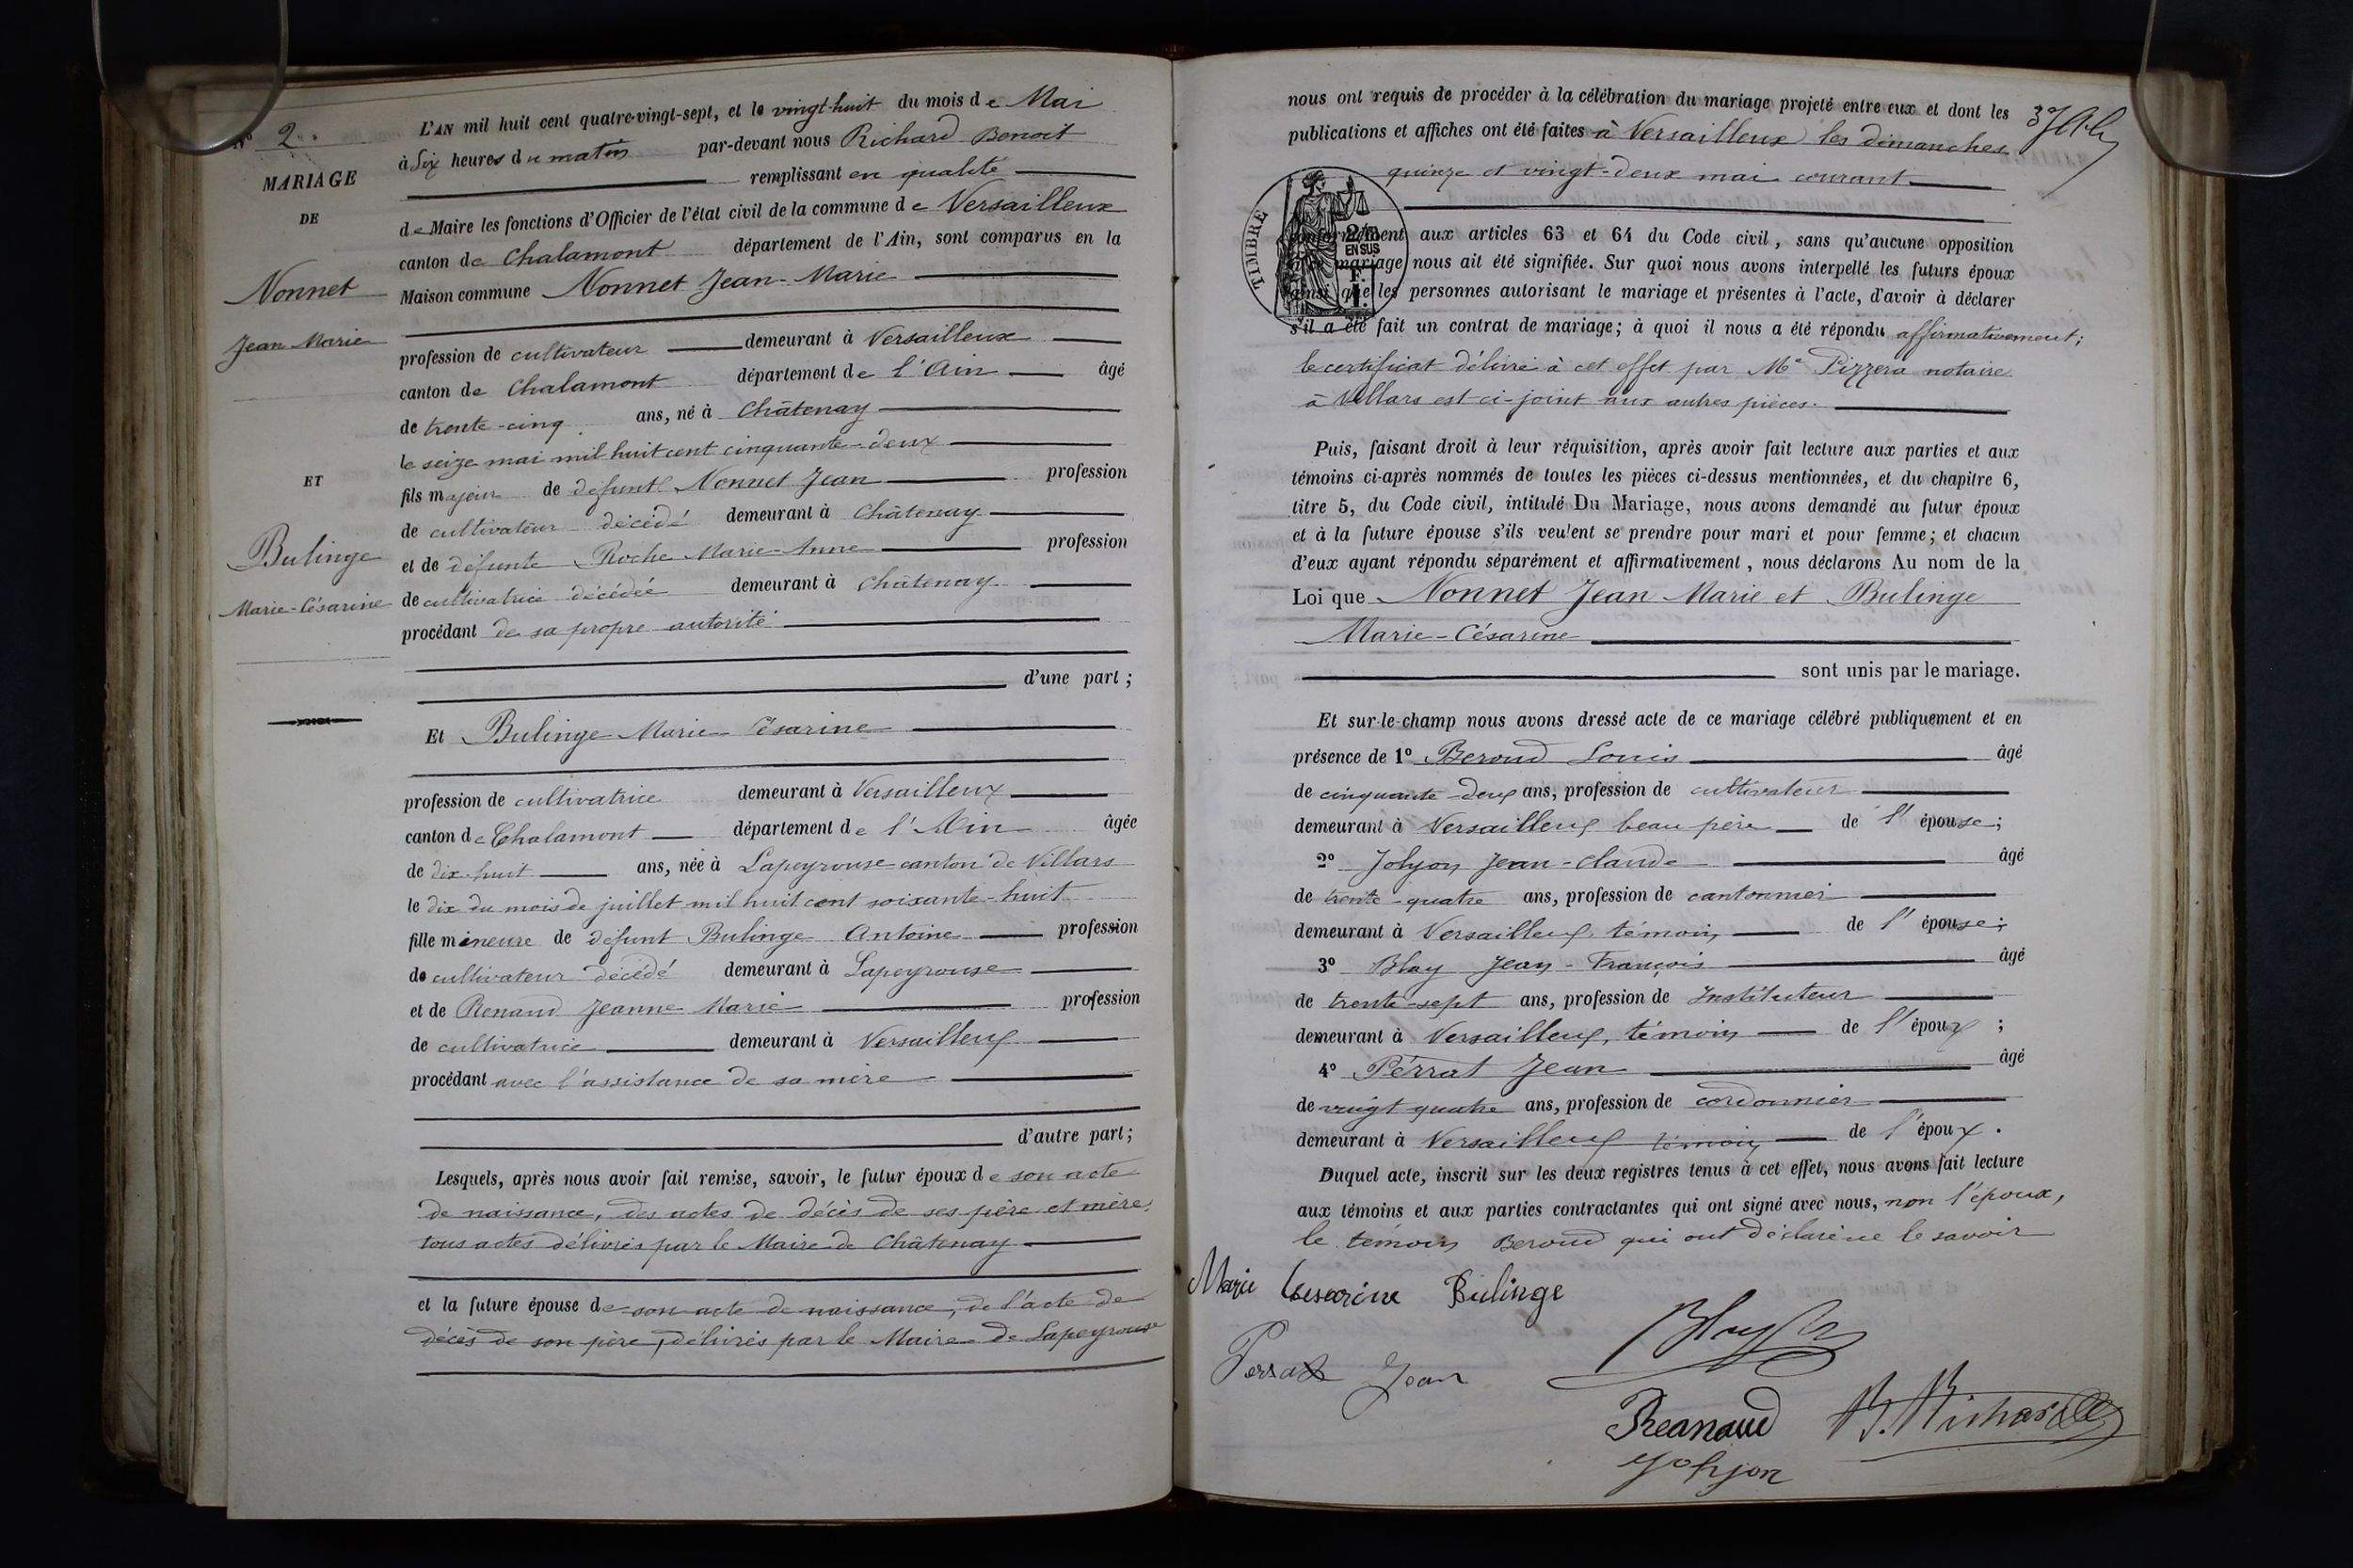 N° 2.
MARIAGE
DE
Nonnet
Jean Marie
ET
Bulinge
Marie-Césarine
L'AN mil huit cent quatre-vingt-sept, et le vingt-huit du mois de Mai
à Six heures du matin par-devant nous Richard Benoit
remplissant en qualité
de Maire les fonctions d'Officier de l'état civil de la commune de Versailleux
canton de Chalamont département de l'Ain, sont comparus en la
Maison commune Nonnet Jean-Marie
profession de cultivateur demeurant à Versailleux
canton de Chalamont département de l'Ain âgé
de trente-cinq ans, né à Châtenay
le seize mai mil huit cent cinquante-deux
fils majeur de défunt Nonnet Jean profession
de cultivateur décédé demeurant à Châtenay
et de défunte Roche Marie-Anne profession
de cultivatrice décédée demeurant à Châtenay
procédant de sa propre autorité
d'une part ;
Et Bulinge Marie Césarine
profession de cultivatrice demeurant à Versailleux
canton de Chalamont département de l'Ain âgée
de dix-huit ans, née à Lapeyrouse canton de Villars
le dix du mois de juillet mil huit cent soixante-huit
fille mineure de défunt Bulinge Antoine profession
de cultivateur décédé demeurant à Lapeyrouse
et de Renaud Jeanne Marie profession
de cultivatrice demeurant à Versailleux
procédant avec l'assistance de sa mère
d'autre part ;
Lesquels, après nous avoir fait remise, savoir, le futur époux de son acte
de naissance, des actes de décès de ses père et mère,
tous actes délivrés par le Maire de Châtenay
et la future épouse de son acte de naissance, de l'acte de
décès de son père, délivrés par le Maire de Lapeyrouse
nous ont requis de procéder à la célébration du mariage projeté entre eux et dont les
publications et affiches ont été faites à Versailleux les dimanches
quinze et vingt-deux mai courant
TIMBRE
2/10
EN SUS
conformément aux articles 63 et 64 du Code civil, sans qu'aucune opposition
mariage nous ait été signifiée. Sur quoi nous avons interpellé les futurs époux
ainsi que les personnes autorisant le mariage et présentes à l'acte, d'avoir à déclarer
s'il a été fait un contrat de mariage ; à quoi il nous a été répondu affirmativement ;
le certificat délivré à cet effet par Me Pizzera notaire
à Villars est ci-joint aux autres pièces.
Puis, faisant droit à leur réquisition, après avoir fait lecture aux parties et aux
témoins ci-après nommés de toutes les pièces ci-dessus mentionnées, et du chapitre 6,
titre 5, du Code civil, intitulé Du Mariage, nous avons demandé au futur époux
et à la future épouse s'ils veulent se prendre pour mari et pour femme ; et chacun
d'eux ayant répondu séparément et affirmativement, nous déclarons Au nom de la
Loi que Nonnet Jean Marie et Bulinge
Marie-Césarine
sont unis par le mariage.
Et sur-le-champ nous avons dressé acte de ce mariage célébré publiquement et en
présence de 1° Beroud Louis âgé
de cinquante-deux ans, profession de cultivateur
demeurant à Versailleux beau père de l'épouse ;
2° Jolyon Jean-Claude âgé
de trente-quatre ans, profession de cantonnier
demeurant à Versailleux, témoin de l'épouse ;
3° Blay Jean-François âgé
de trente-sept ans, profession de Instituteur
demeurant à Versailleux, témoin de l'époux ;
4° Pérrat Jean âgé
de vingt quatre ans, profession de cordonnier
demeurant à Versailleux témoin de l'époux.
Duquel acte, inscrit sur les deux registres tenus à cet effet, nous avons fait lecture
aux témoins et aux parties contractantes qui ont signé avec nous, non l'époux,
le témoin Beroud qui ont déclaré ne le savoir
Marie Cesarine Bulinge
Blay
Perrat Jean
Reanaud B. Richard
Jolyon